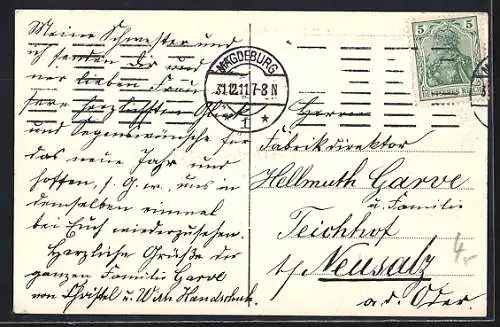 Meine Schwester und
ich senden Dir und
ner lieben Frau
sere herzlichsten Glück
und Segenswünsche für
das neue Jahr und
hoffen, s. G. w., uns in
demselben einmal
bei Euch wiederzusehen.
Herzliche Grüße der
ganzen Familie Garve
von Christel u. Handschuh.
MAGDEBURG
31.12.11.7-8 N
f *
5 5
DEUTSCHES REICH
Herrn
Fabrikdirektor
Hellmuth Garve
u. Familie
Teichhof
b/ Neusalz
a. d. Oder.
4,-